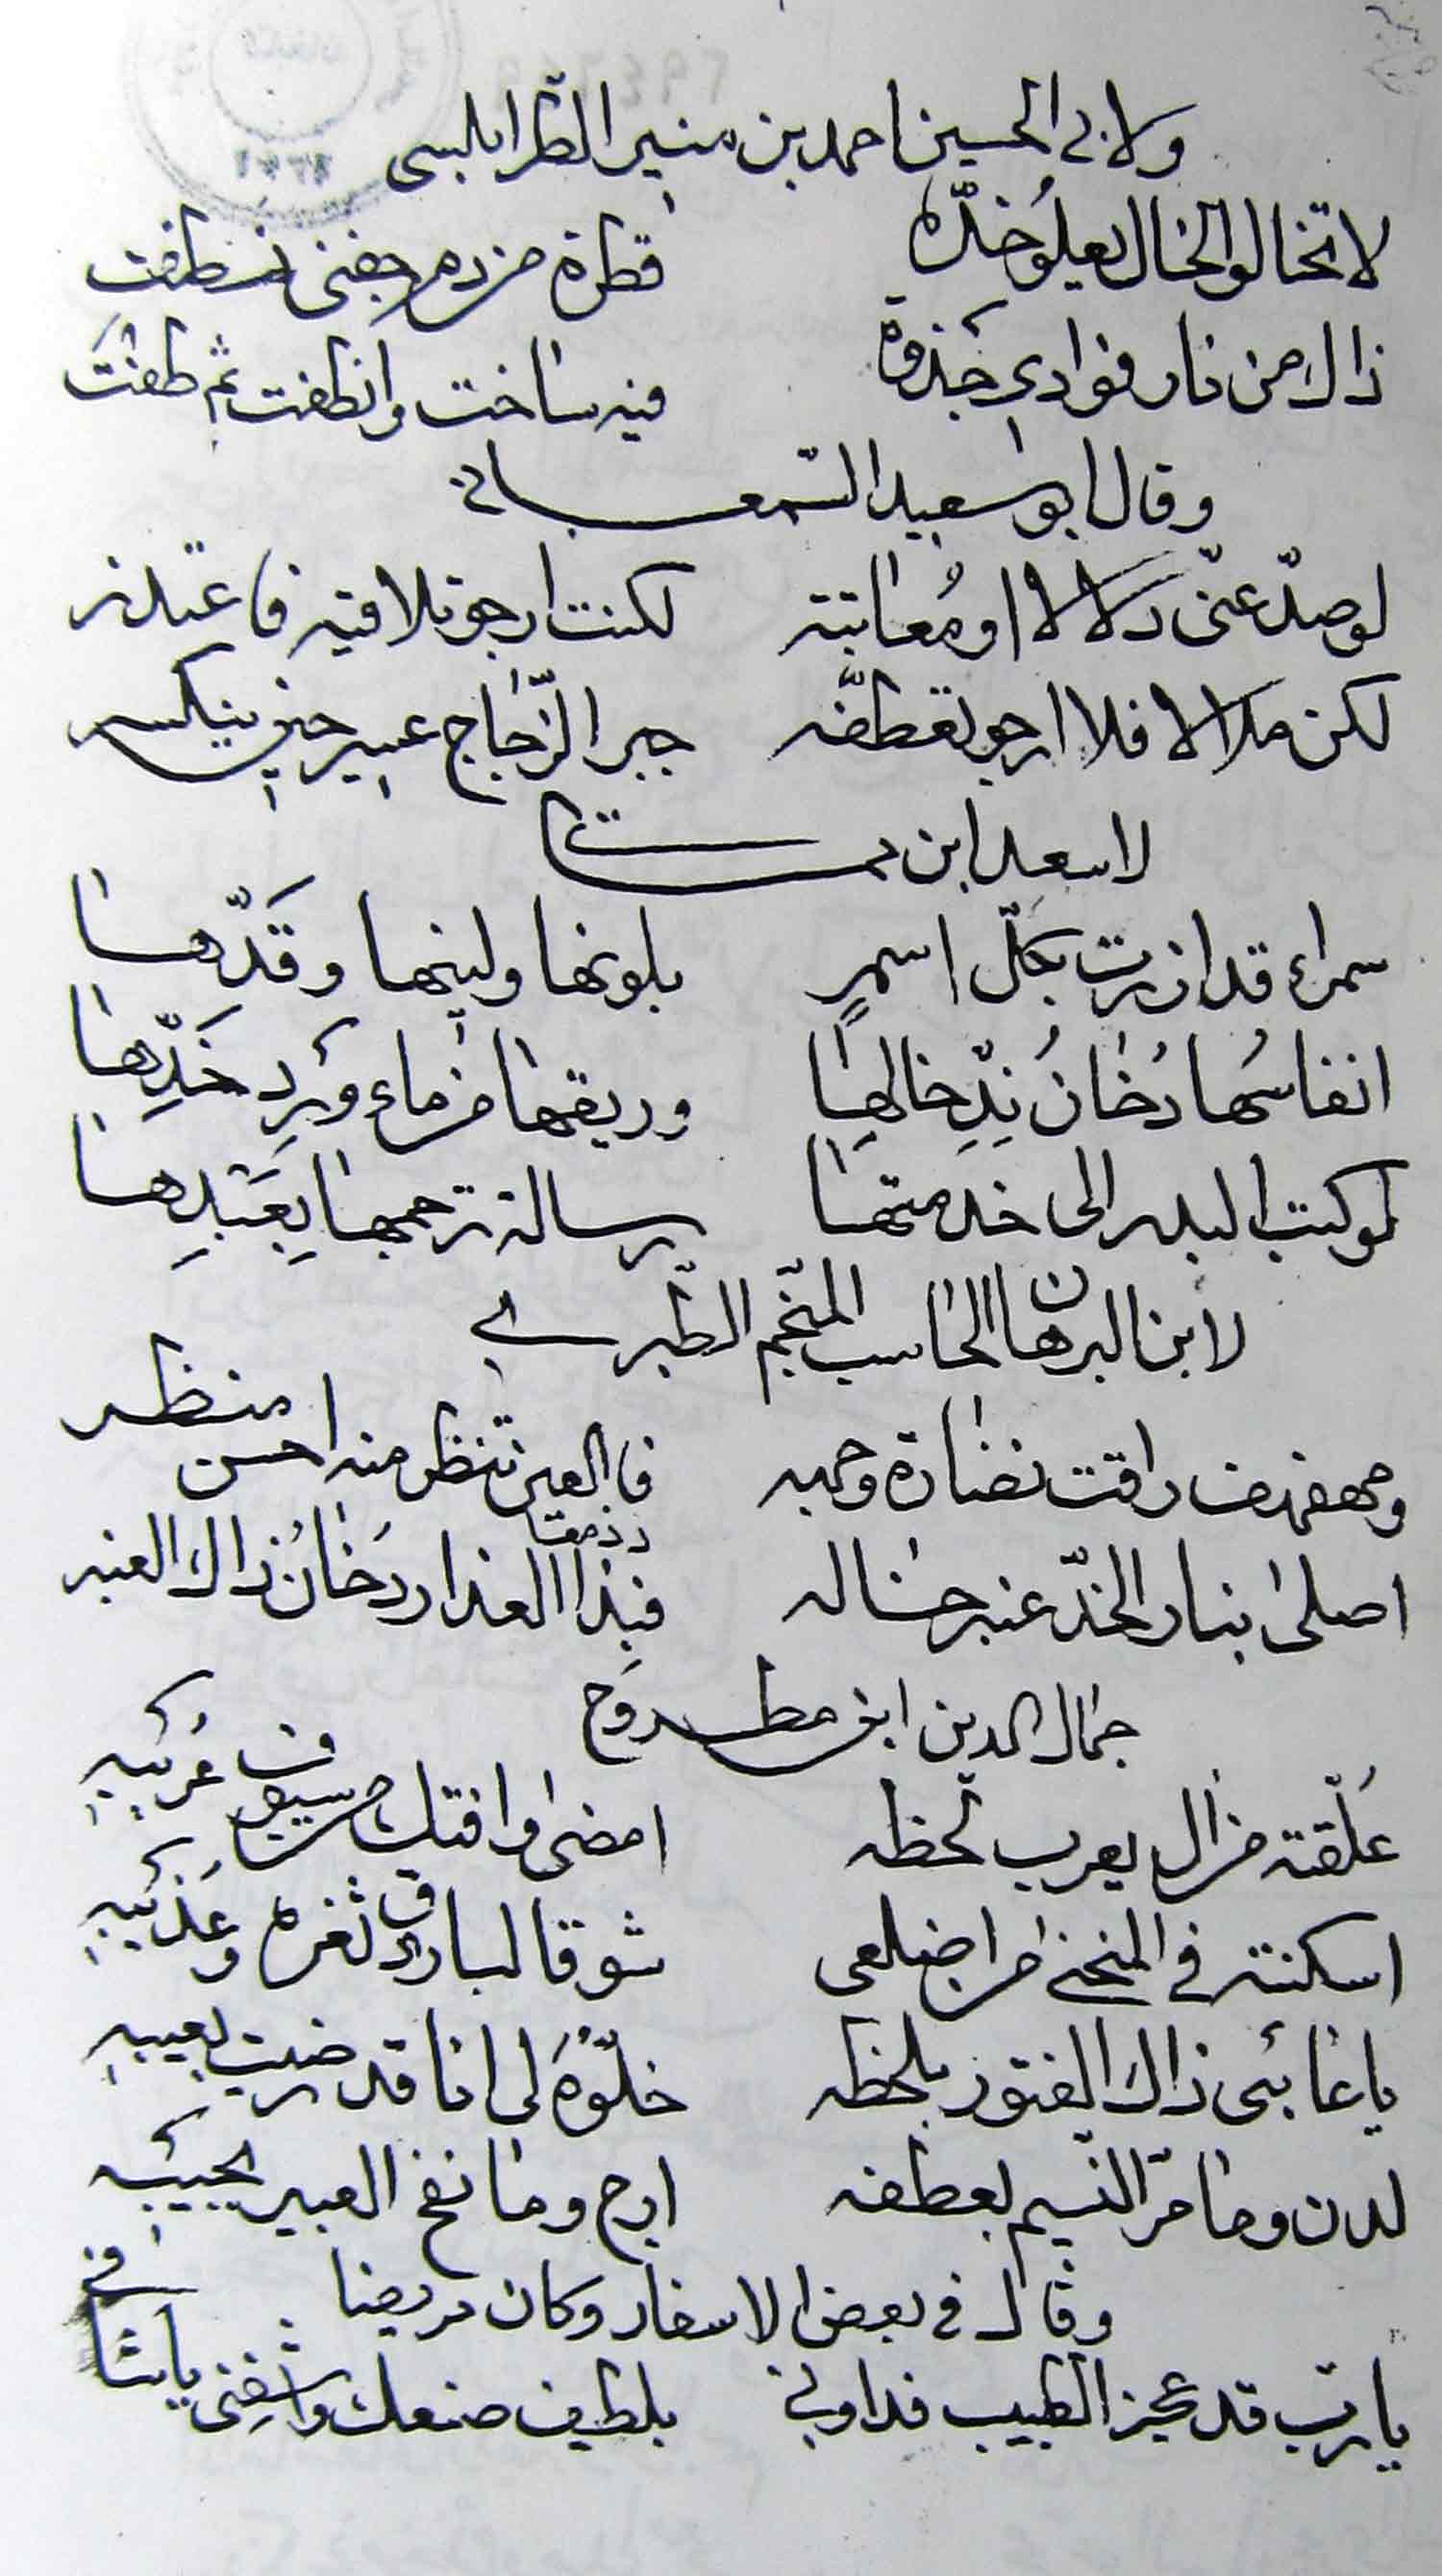 ولابي الحسين احمد بن منير الطرابلسي
لا تخالوا الخال يعلو خدّه قطرة من دم جفني نطفت
ذاك من نار فوادي جذوة فيه ساخت وانطفت ثم طفت
وقال ابو سعيد السّمعاني
لو صدّ عنّي دلالا او مُعاتبة لكنت ارجو تلافيه فاعتذر
لكن ملالا فلا ارجو تعطفه جبر الزّجاج عسير حين ينكسر
لاسعد ابن مماتي
سمراء قد ازرت بكلّ اسمرٍ بلونها ولينها وقدّها
انفاسُها دُخانُ ندِّ خالها وريقها من ماء وردِ خدِّها
لو كتب البدر الى خدمتها رسالة ترجمها بِعَبْدِها
لابن البرهان الحاسب المنجّم الطبري
ومهفهف راقت نضارة وجهه فالعين تنظر منه احسن منظر
اصلى بنار الخدّ عنبر خاله فبدا العذار دخانُ ذاك العنبر
جمال الدين ابن مطروح
عُلّقته من ال يعرب لحظه امضى وافتك من سيوف عُرَيبه
اسكنته في المنحنى من اضلعي شوقا لبارق ثغره وعُذَيبه
يا عائبي ذاك الفتور بلحظه خلّوهُ لي انا قد رضيت بعيبه
لدن وما مرّ النسيم بعطفه ارج وما نفح العبير بجيبه
وقال في بعض الاسفار وكان مريضا
يا ربّ قد عجز الطبيب فداوني بلطيف صنعك واشفِني يا شافي